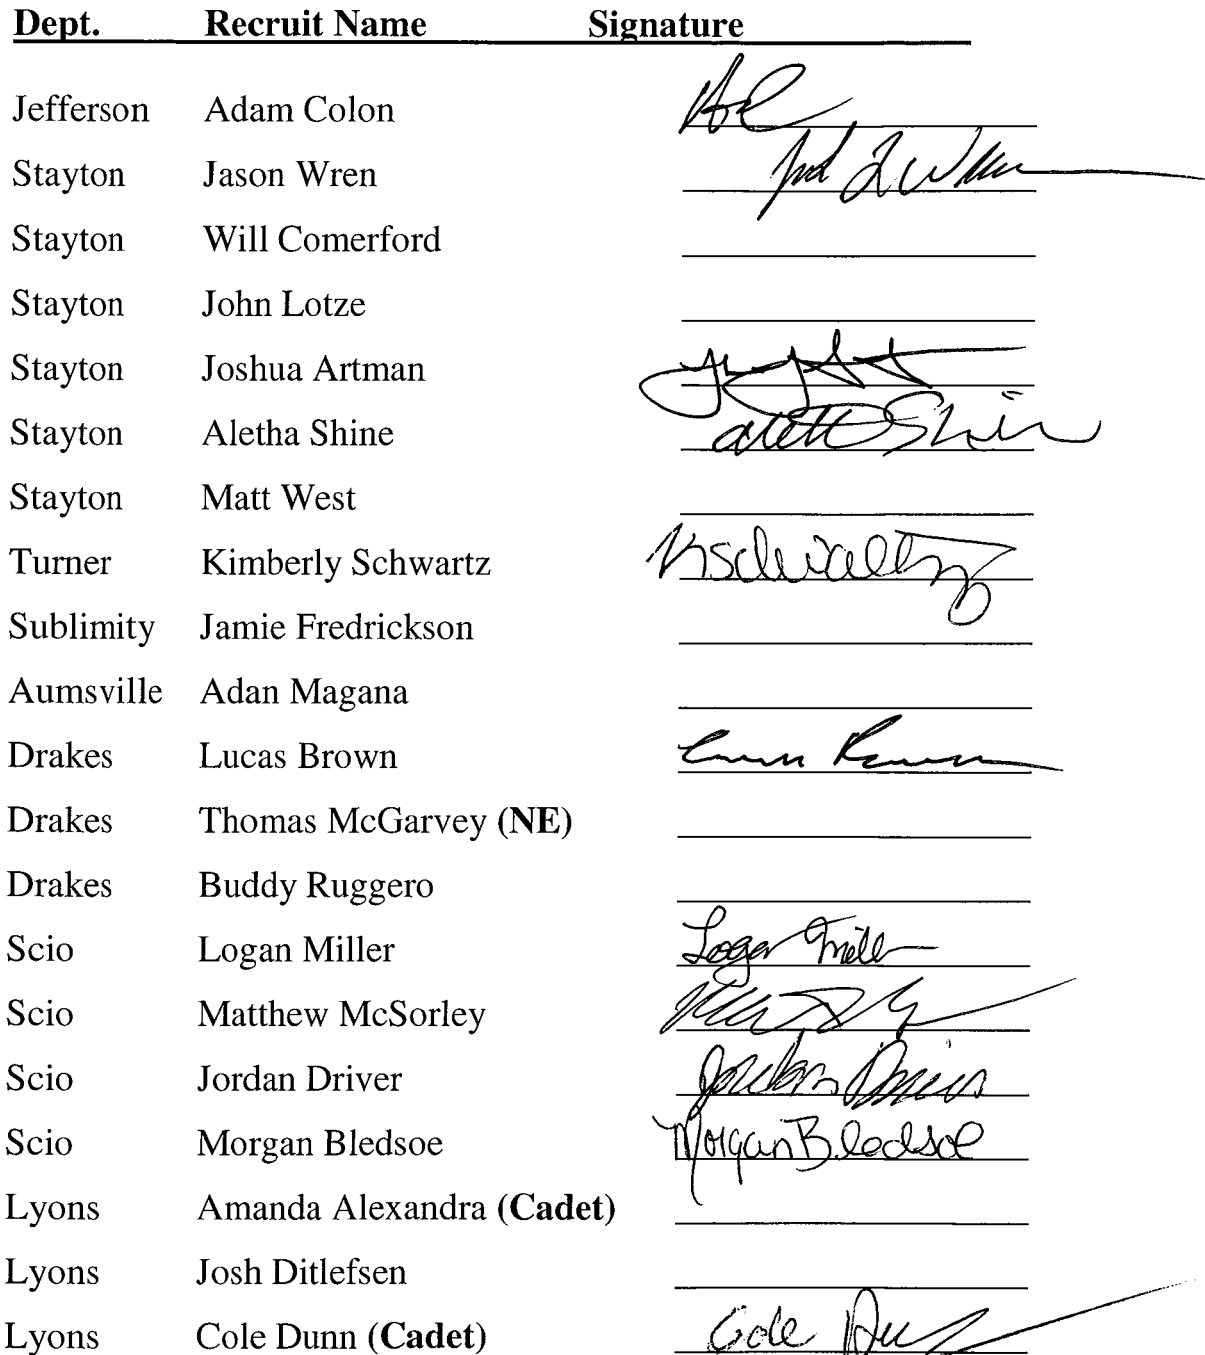 Dept. Recruit Name Signature
Jefferson Adam Colon
Stayton Jason Wren
Stayton Will Comerford
Stayton John Lotze
Stayton Joshua Artman
Stayton Aletha Shine
Stayton Matt West
Turner Kimberly Schwartz Kschwartz
Sublimity Jamie Fredrickson
Aumsville Adan Magana
Drakes Lucas Brown
Drakes Thomas McGarvey (NE)
Drakes Buddy Ruggero
Scio Logan Miller Logan Miller
Scio Matthew McSorley
Scio Jordan Driver Jordan
Scio Morgan Bledsoe Morgan Bledsoe
Lyons Amanda Alexandra (Cadet)
Lyons Josh Ditlefsen
Lyons Cole Dunn (Cadet) Cole